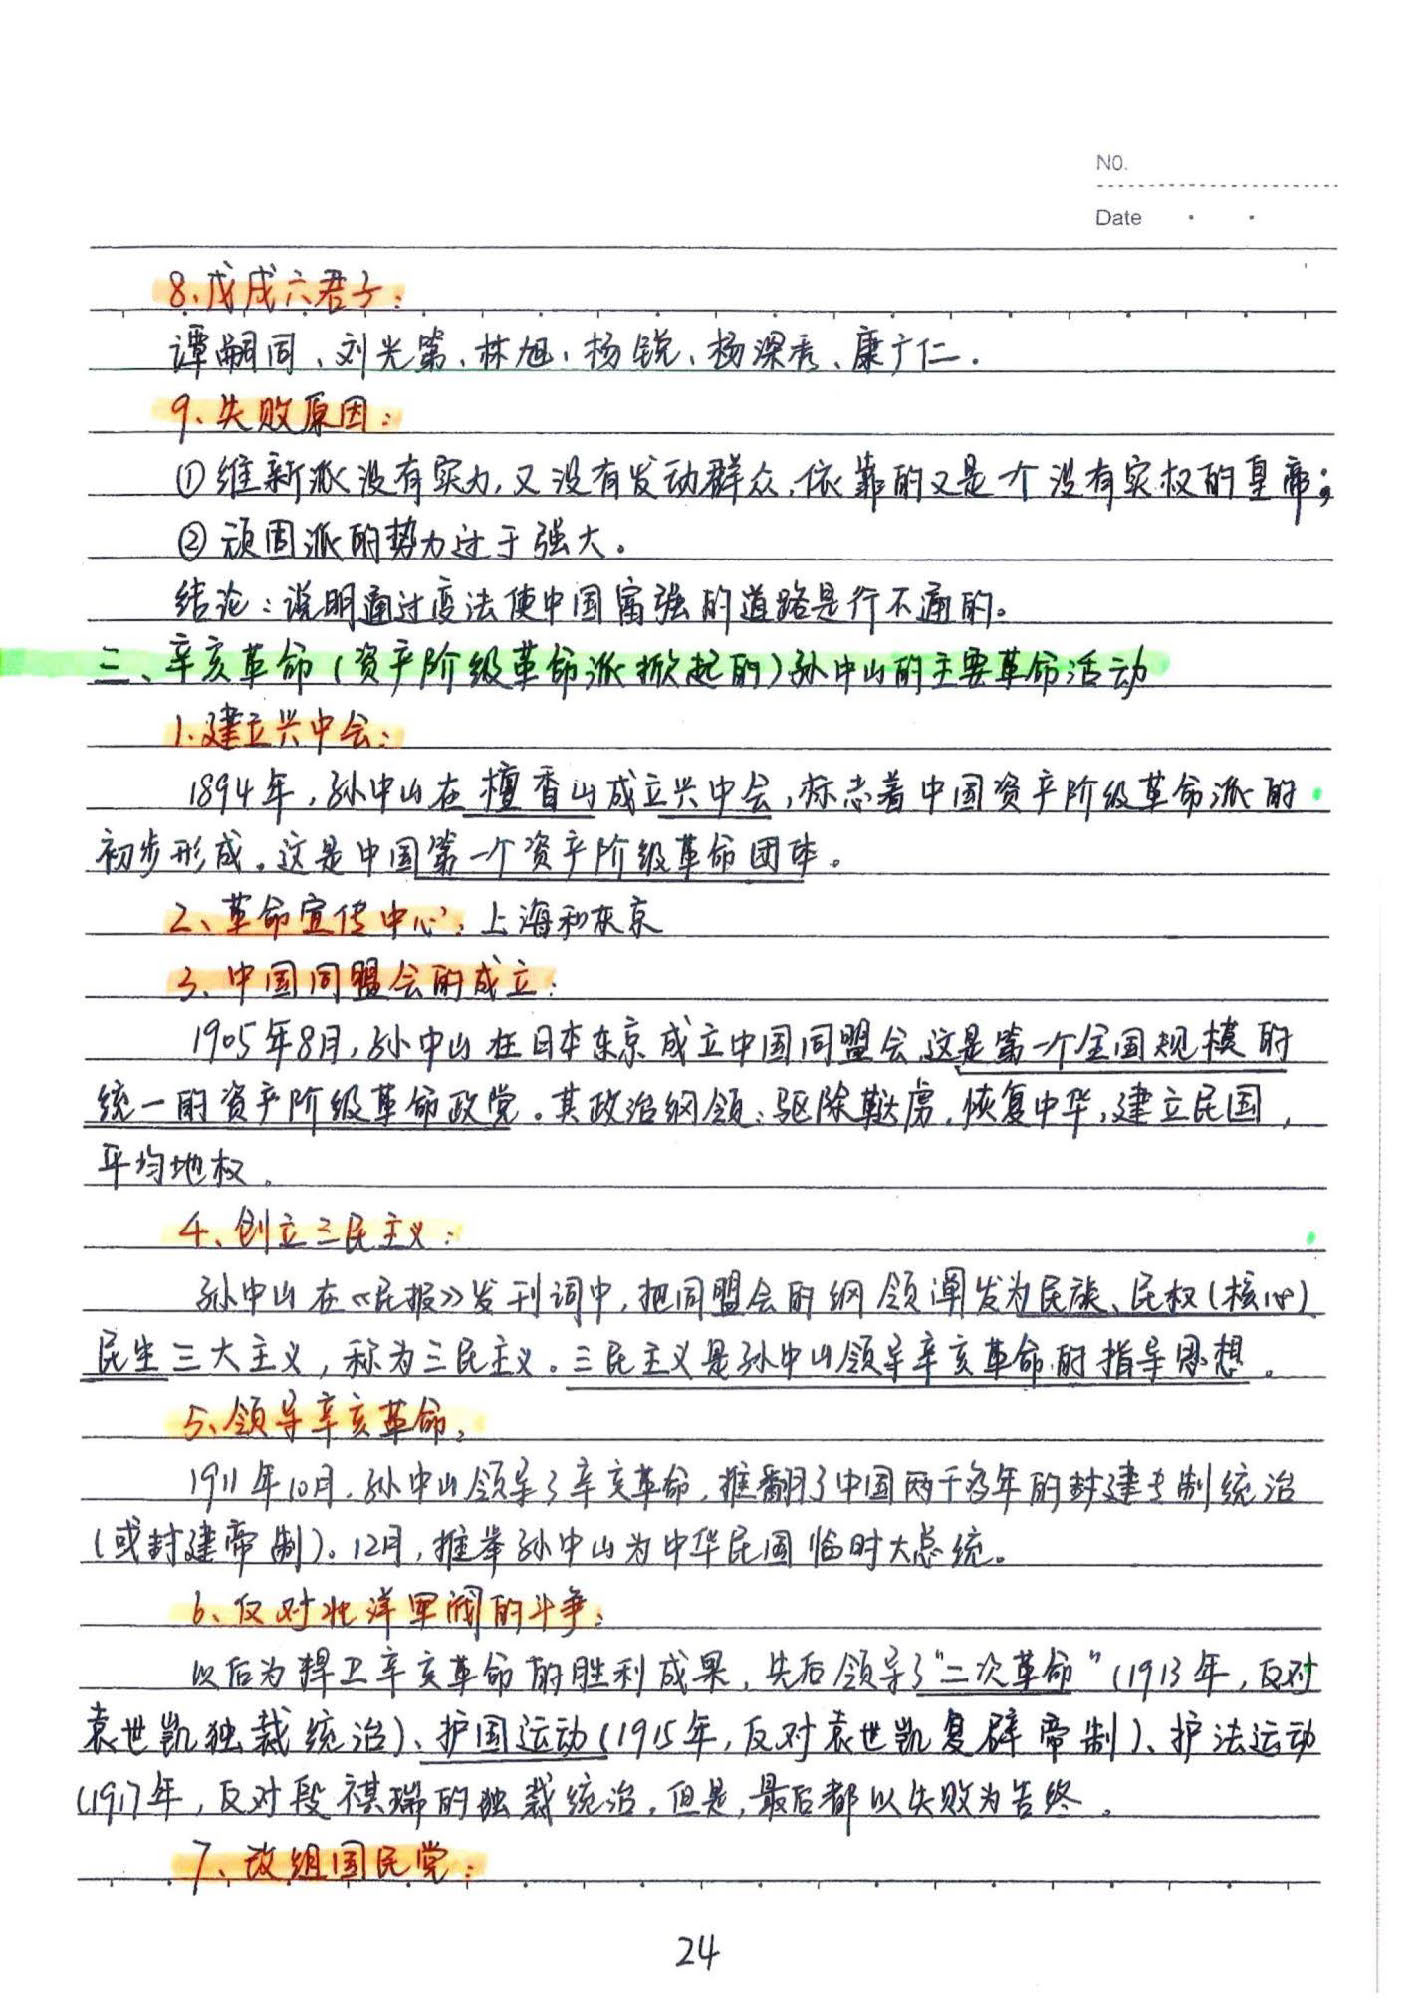 NO.
Date
8、戊戌六君子：
谭嗣同、刘光第、林旭、杨锐、杨深秀、康广仁.
9、失败原因：
①维新派没有实力,又没有发动群众,依靠的又是一个没有实权的皇帝；
②顽固派的势力过于强大。
结论：说明通过变法使中国富强的道路是行不通的。
三、辛亥革命(资产阶级革命派掀起的)孙中山的主要革命活动
1.建立兴中会：
1894年,孙中山在檀香山成立兴中会,标志着中国资产阶级革命派的
初步形成。这是中国第一个资产阶级革命团体。
2、革命宣传中心：上海和东京
3、中国同盟会的成立：
1905年8月,孙中山在日本东京成立中国同盟会,这是第一个全国规模的
统一的资产阶级革命政党。其政治纲领：驱除鞑虏,恢复中华,建立民国,
平均地权。
4、创立三民主义：
孙中山在《民报》发刊词中,把同盟会的纲领阐发为民族、民权(核心)
民生三大主义,称为三民主义。三民主义是孙中山领导辛亥革命的指导思想。
5、领导辛亥革命：
1911年10月,孙中山领导了辛亥革命,推翻了中国两千多年的封建专制统治
(或封建帝制)。12月,推举孙中山为中华民国临时大总统。
6、反对北洋军阀的斗争：
以后为捍卫辛亥革命的胜利成果,先后领导了"二次革命"(1913年,反对
袁世凯独裁统治)、护国运动(1915年,反对袁世凯复辟帝制)、护法运动
(1917年,反对段祺瑞的独裁统治,但是,最后都以失败为告终。
7、改组国民党：
24